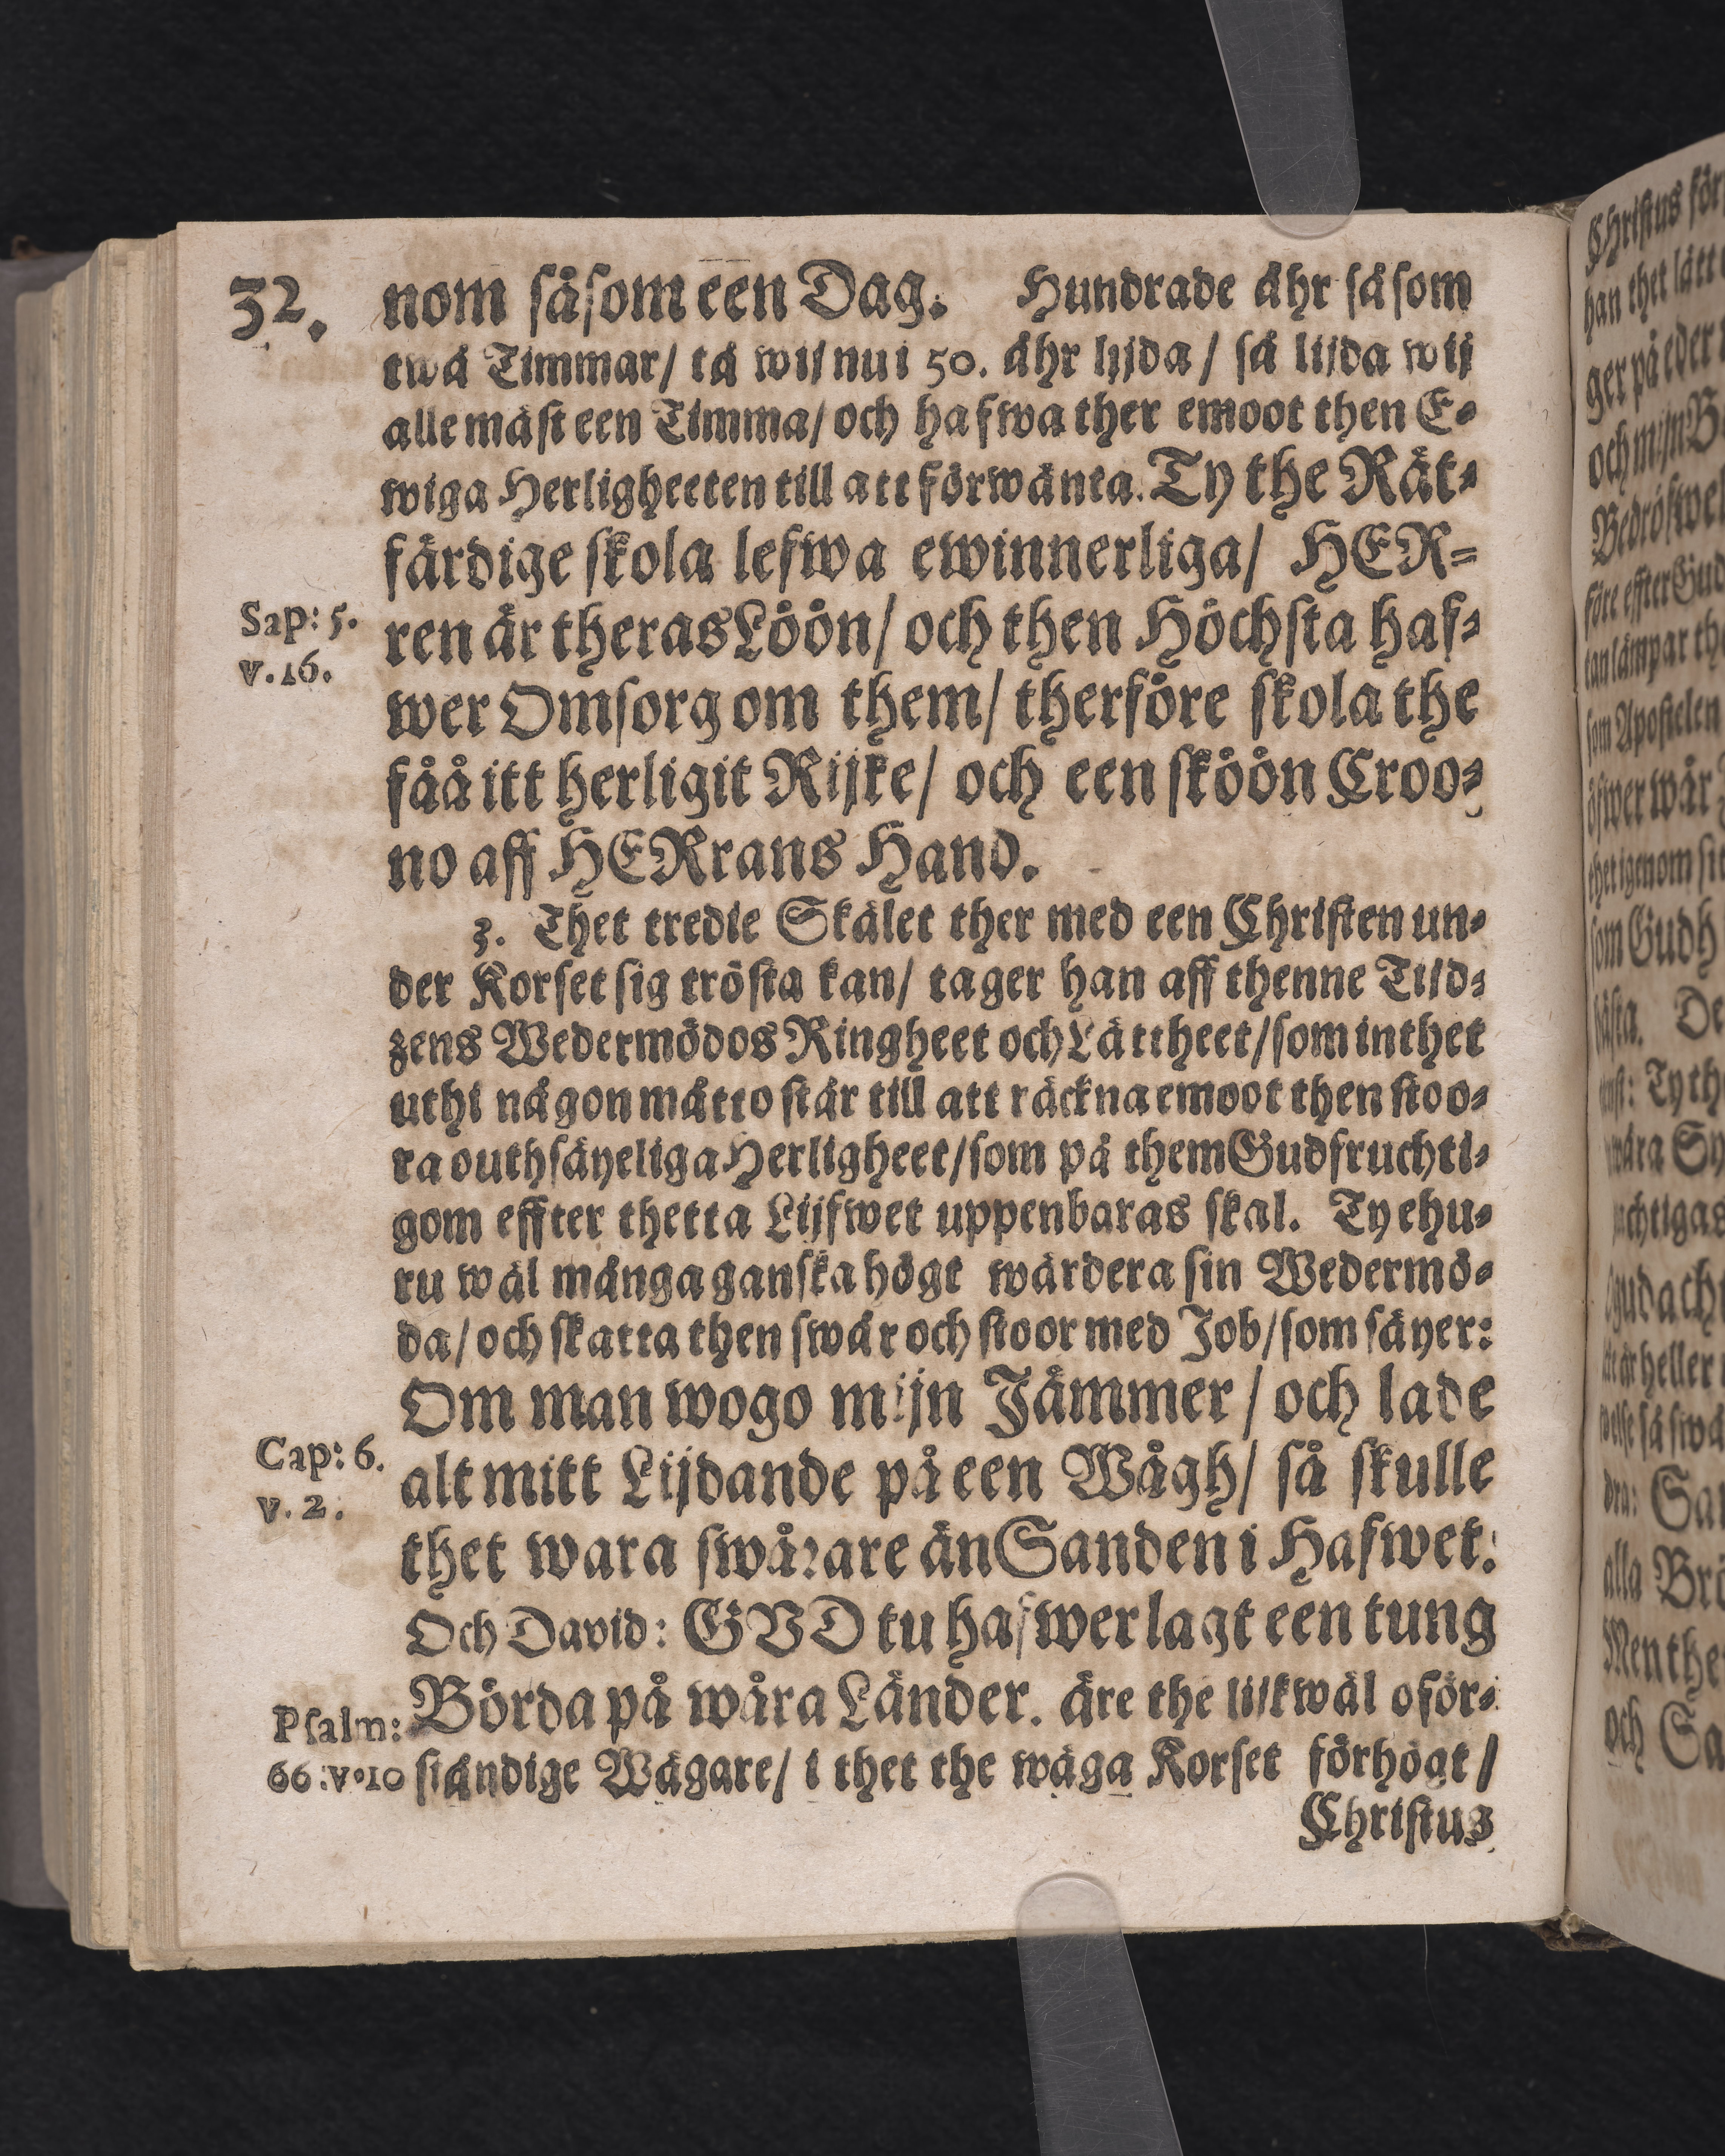 32.
nom såsom een Dag. Hundrade åhr såsom
twå Timmar/ tå wij nu i 50. åhr lijda / så lijda wij
alle mäst een Timma/ och hafwa ther emoot then E-
wiga Herligheeten till att förwänta. Ty the Rät-
färdige skola lefwa ewinnerliga/ HER-
Sap: 5.
v. 16.
ren är theras Löön/ och then Höchsta haf-
wer Omsorg om them/ therföre skola the
fåå itt herligit Rijke/ och een sköön Croo-
no aff HERrans Hand.
3. Thet tredie Skälet ther med een Christen un-
der Korset sig trösta kan/ tager han aff thenne Tijd-
zens Wedermödos Ringheet och Lättheet/ som inthet
uthi någon måtto står till att räckna emoot then stoo-
ra outhsäyeliga Herligheet/ som på them Gudfruchti-
gom effter thetta Lijfwet uppenbaras skal. Ty ehu-
ru wäl många ganska högt wärdera sin Wedermö-
da/ och skatta then swår och stoor med Job/ som säyer:
Om man wogo mijn Jämmer / och lade
Cap: 6.
v. 2.
alt mitt Lijdande på een Wågh/ så skulle
thet wara swårare än Sanden i Hafwet.
Och David: GVD tu hafwer lagt een tung
Psalm:
66 : v. 10
Börda på wåra Länder. äre the lijkwäl oför-
ståndige Wägare/ i thet the wäga Korset förhögt /
Christus